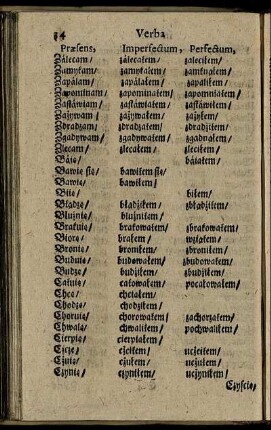 34 Verba
Præsens, Imperfectum, Perfectum,
Zálecam/ zálecałem/ záleciłem/
Zamykam/ zamykałem/ zamknąłem/
Zapálam/ zapáláłem/ zapáliłem/
Zapominam/ zapominałem/ zapomniałem/
Zastáwiam/ zastáwiałem/ zastáwiłem/
Zażywam/ zażywałem/ zażyłem/
Zdradzam/ zdradzałem/ zdradziłem/
Zgadywam/ zgadywałem/ zgadnąłem/
Zlecam/ zlecałem/ zleciłem/
Báię/ báiałem/
Bawię się/ bawiłem się/
Bawię/ bawiłem/
Biię/ biłem/
Błądzę/ błądziłem/ zbłądziłem/
Bluźnię/ bluźniłem/
Brakuię/ brakowałem/ zbrakowałem/
Biorę/ brałem/ wziąłem/
Bronię/ broniłem/ zbroniłem/
Buduię/ budowałem/ zbudowałem/
Budzę/ budziłem/ zbudziłem/
Całuię/ całowałem/ pocałowałem/
Chcę/ chciałem/
Chodzę/ chodziłem/
Choruię/ chorowałem/ zachorzałem/
Chwalę/ chwaliłem/ pochwaliłem/
Cierpię/ cierpiałem/
Czczę/ cźciłem/ uczciłem/
Czuię/ czułem/ uczułem/
Czynię/ czyniłem/ uczyniłem/
Czyścię